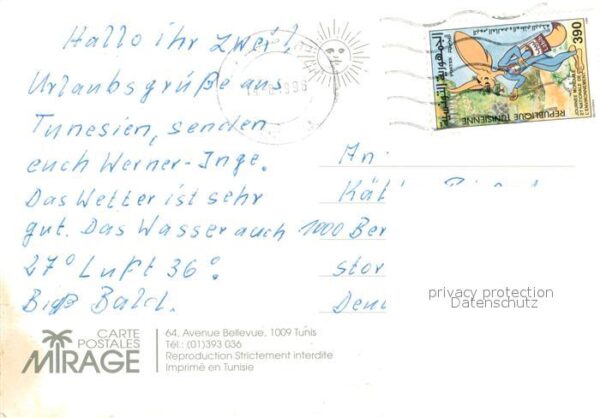 Hallo ihr zwei!
Urlaubsgrüße aus
Tunesien, senden
euch Werner-Inge.
Das Wetter ist sehr
gut. Das Wasser auch
27° Luft 36°.
Biß Bald.
An
1000 Ber
privacy protection
Datenschutz
390
REPUBLIQUE TUNISIENNE
الجمهورية التونسية
CARTE
POSTALES
MIRAGE
64, Avenue Bellevue, 1009 Tunis
Tél.: (01)393 036
Reproduction Strictement interdite
Imprimé en Tunisie